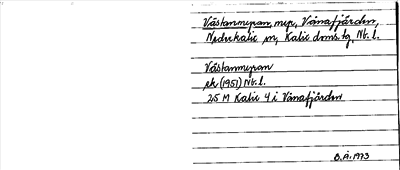 Västanmyran, myr, Vånafjärden,
Nederkalix sn, Kalix doms.tg, Nb.l.
Västanmyran
ek (1951) Nb.l.
25 M Kalix 4 i Vånafjärden
B.Å. 1973